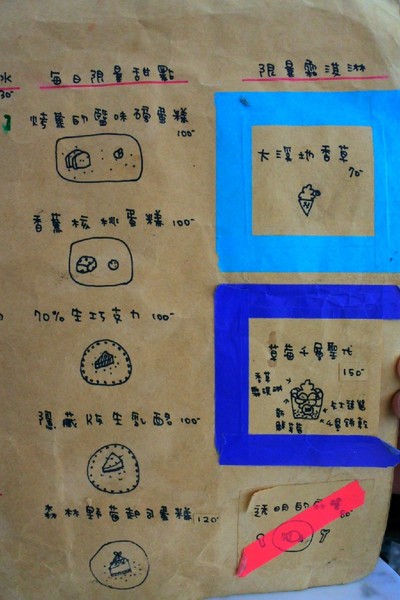 水
每日限量甜點
限量霜淇淋
烤蕉的鹽味磅蛋糕
100-
大溪地香草
70-
香蕉核桃蛋糕 100-
70% 生巧克力 100-
草莓千層聖代
150-
香草
霜淇淋
卡士達醬
新
鮮莓
千層餅乾
隱藏版生乳酪 100-
森林野莓起司蛋糕 120-
透明的
60-